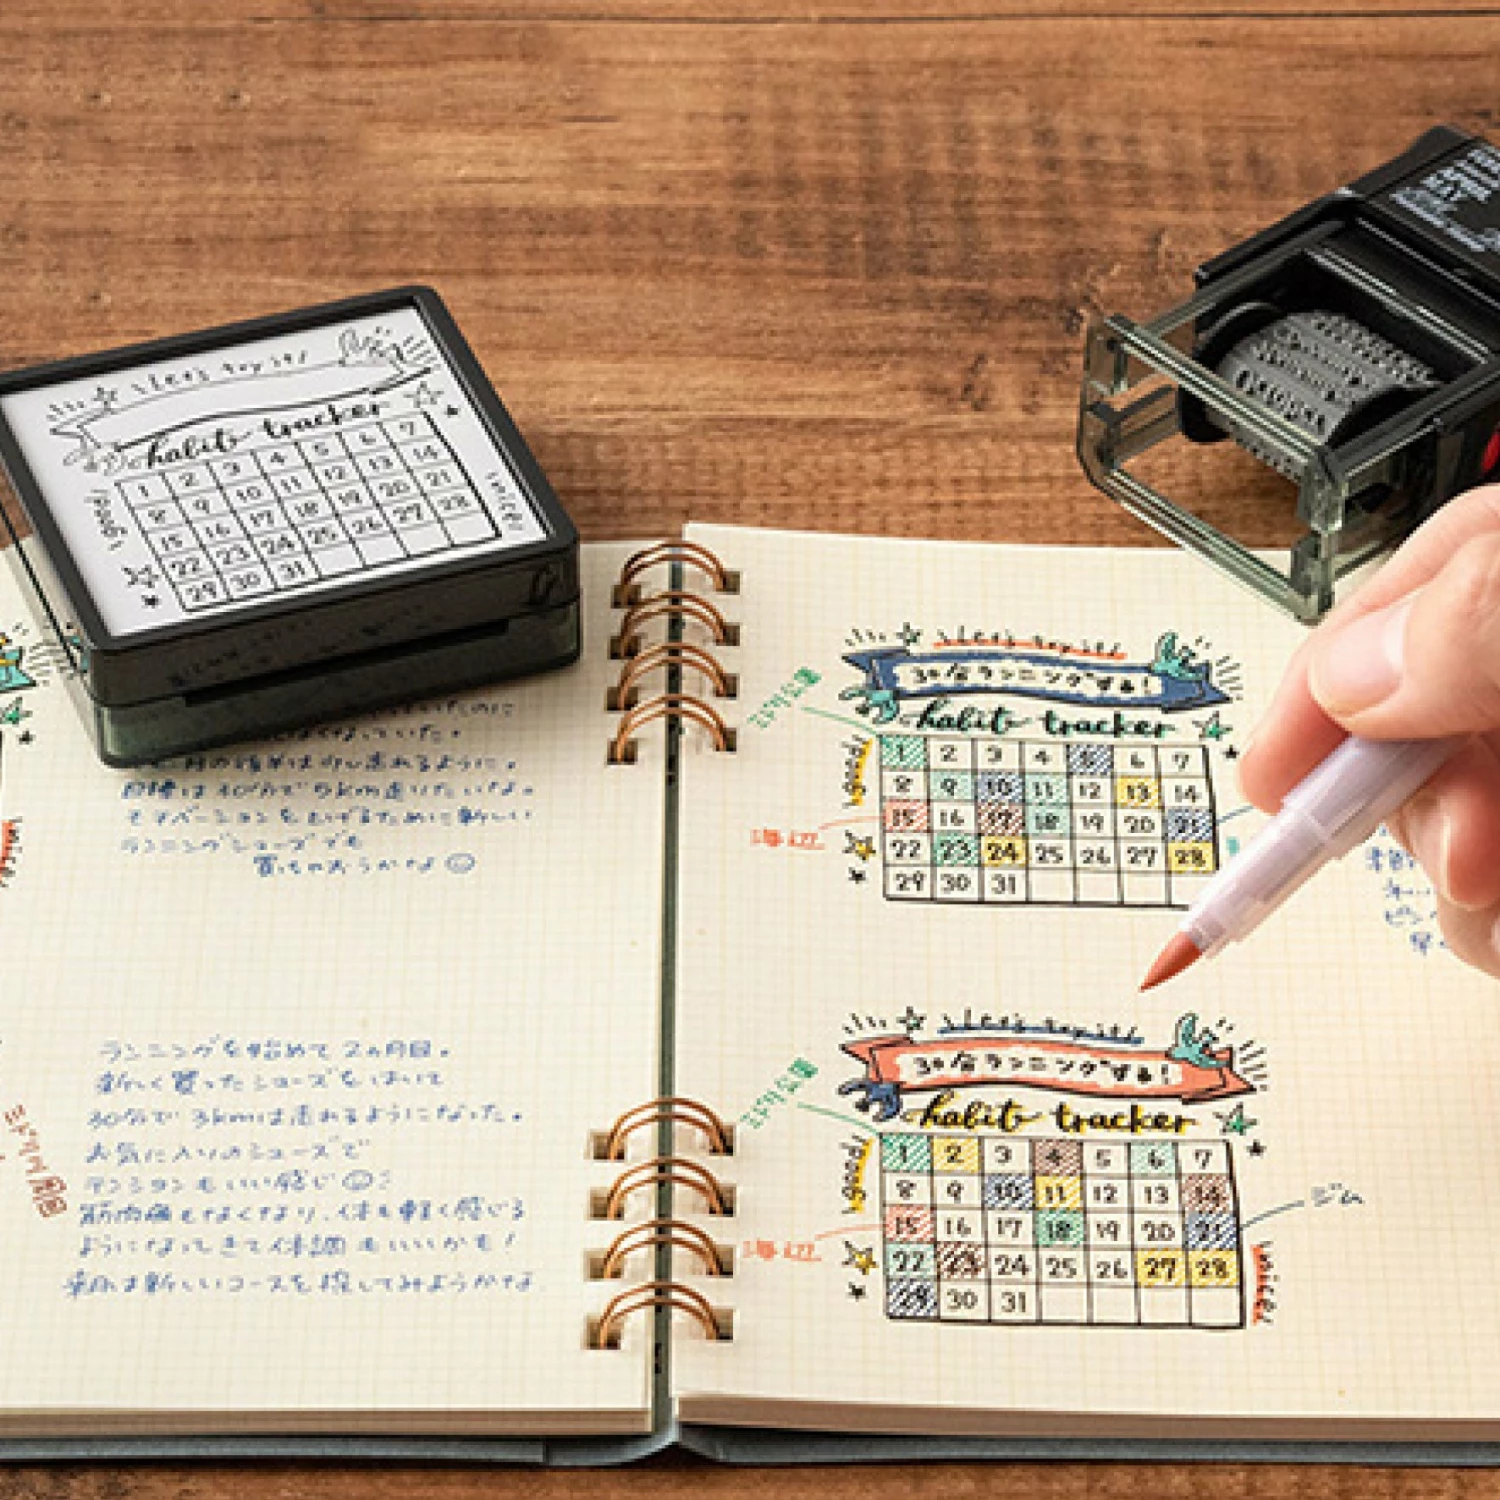 let's try it!
habit tracker
1 2 3 4 5 6 7
8 9 10 11 12 13 14
15 16 17 18 19 20 21
22 23 24 25 26 27 28
29 30 31
good!
nice!
目標は30分で5km走りたいなぁ。
モチベーションを上げるために新しい
ランニングシューズでも
買っちゃおうかな
ランニングを始めて2ヵ月目。
新しく買ったシューズをはいて
30分で3kmは走れるようになった。
お気に入りのシューズで
テンションもいい感じ
筋肉痛もなくなり、体も軽く感じる
ようになってきて体調もいいかも!
来月は新しいコースを探してみようかな
let's try it!
30分ランニングする!
habit tracker
good!
1 2 3 4 5 6 7
8 9 10 11 12 13 14
15 16 17 18 19 20 21
22 23 24 25 26 27 28
29 30 31
let's try it!
30分ランニングする!
habit tracker
good!
1 2 3 4 5 6 7
8 9 10 11 12 13 14
15 16 17 18 19 20 21
22 23 24 25 26 27 28
29 30 31
ジム
nice!